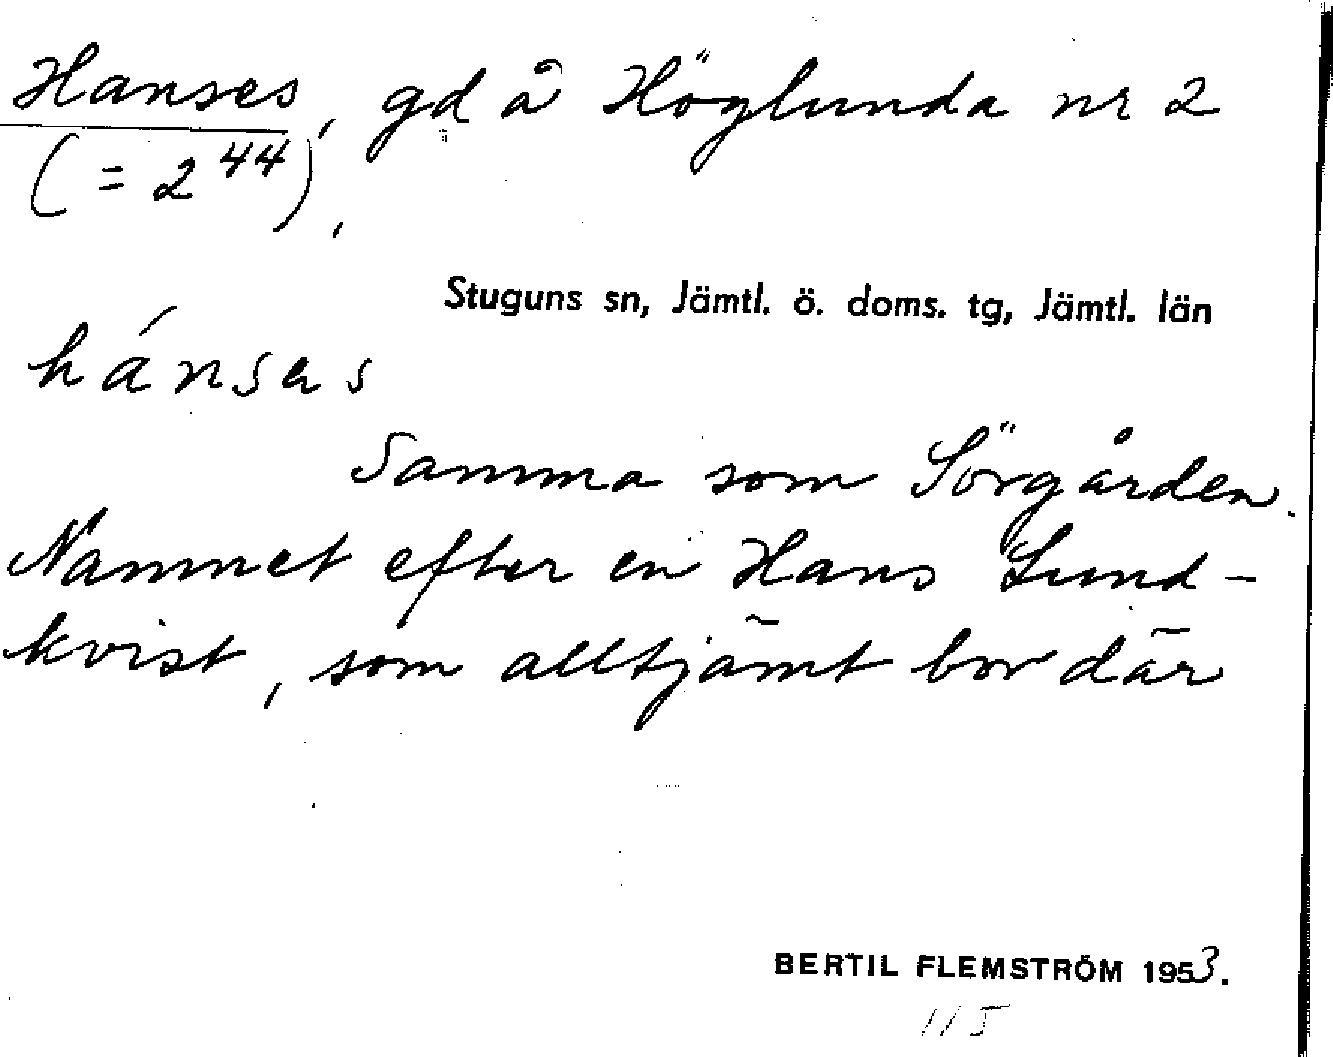 Hanses, gd å Höglunda nr 2
(= 2⁴⁴),
Stuguns sn, Jämtl. ö. doms. tg, Jämtl. län
hánsas
Samma som Sörgården.
Namnet efter en Hans Lund-
kvist, som alltjämt bor där
BERTIL FLEMSTRÖM 1953.